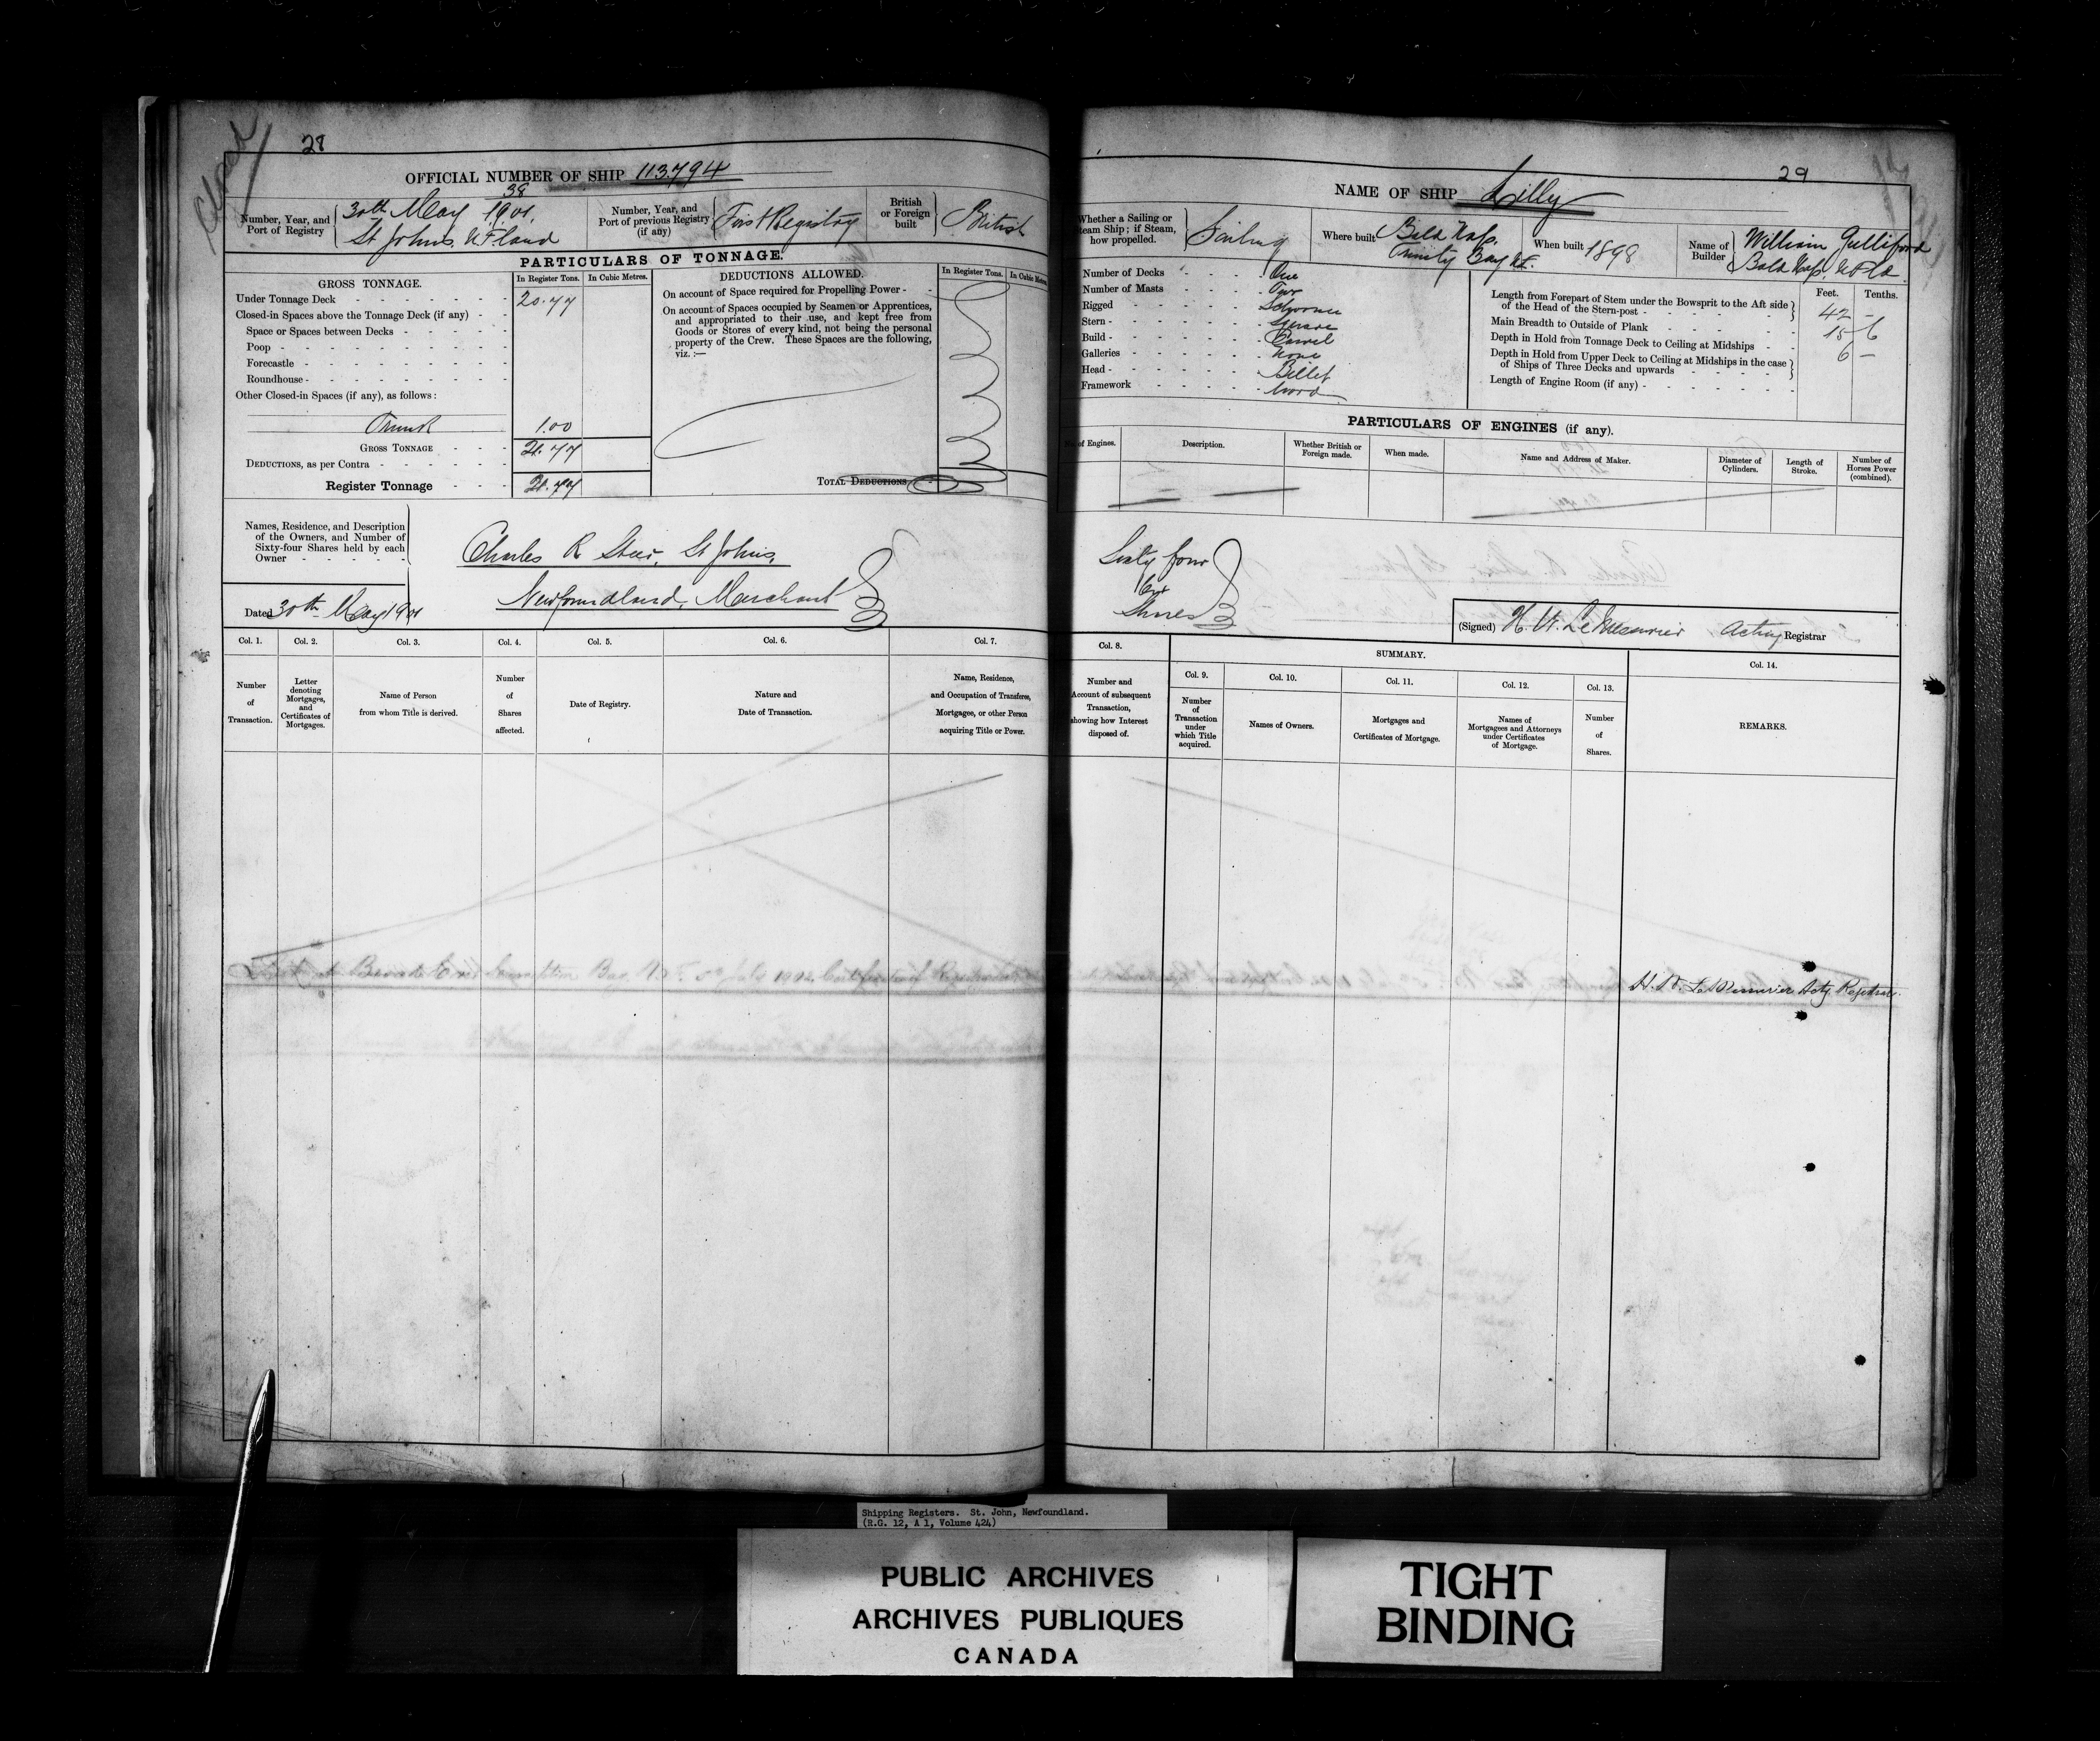 Closed
28
OFFICIAL NUMBER OF SHIP 113.794
38
Number, Year, and Port of Registry
30th May 1901.
St Johns. N F land
Number, Year, and Port of previous Registry (if any)
First Registry
British or Foreign built
British
PARTICULARS OF TONNAGE.
GROSS TONNAGE.
In Register Tons.
In Cubic Metres.
DEDUCTIONS ALLOWED.
In Register Tons.
Under Tonnage Deck
20.77
Closed-in Spaces above the Tonnage Deck (if any)
Space or Spaces between Decks
Poop
Forecastle
Roundhouse
Other Closed-in Spaces (if any), as follows:
Trunk 1.00
GROSS TONNAGE 21.77
DEDUCTIONS, as per Contra
Register Tonnage 21.77
On account of Space required for Propelling Power
On account of Spaces occupied by Seamen or Apprentices,
and appropriated to their use, and kept free from
Goods or Stores of every kind, not being the personal
property of the Crew. These Spaces are the following,
viz.:—
TOTAL DEDUCTIONS
Names, Residence, and Description
of the Owners, and Number of
Sixty-four Shares held by each
Owner
Charles R Steer, St Johns,
Newfoundland, Merchant
Dated 30th May 1901
Col. 1.
Number of Transaction.
Col. 2.
Letter denoting Mortgages, and Certificates of Mortgages.
Col. 3.
Name of Person from whom Title is derived.
Col. 4.
Number of Shares affected.
Col. 5.
Date of Registry.
Col. 6.
Nature and Date of Transaction.
Col. 7.
Name, Residence, and Occupation of Transferee, Mortgagee, or other Person acquiring Title or Power.
Bay N.F. 5th July 1902. Certificate of
29
NAME OF SHIP Lilly
Whether a Sailing or
Steam Ship; if Steam,
how propelled.
Sailing
Where built
Trinity Bay N.F.
When built 1898
Name of Builder
William Gulliford
Number of Decks One
Number of Masts Two
Rigged Schooner
Stern Square
Build Carvel
Galleries None
Head Billet
Framework Wood
Feet. Tenths.
Length from Forepart of Stem under the Bowsprit to the Aft side
of the Head of the Stern-post 42 –
Main Breadth to Outside of Plank 15 6
Depth in Hold from Tonnage Deck to Ceiling at Midships 6 –
Depth in Hold from Upper Deck to Ceiling at Midships in the case
of Ships of Three Decks and upwards
Length of Engine Room (if any)
PARTICULARS OF ENGINES (if any).
of Engines.
Description.
Whether British or Foreign made.
When made.
Name and Address of Maker.
Diameter of Cylinders.
Length of Stroke.
Number of Horses Power (combined).
Sixty four
Shares
(Signed) H. W. LeMessurier Acting Registrar
Col. 8.
Number and Account of subsequent Transaction, showing how Interest disposed of.
SUMMARY.
Col. 9.
Number of Transaction under which Title acquired.
Col. 10.
Names of Owners.
Col. 11.
Mortgages and Certificates of Mortgage.
Col. 12.
Names of Mortgagees and Attorneys under Certificates of Mortgage.
Col. 13.
Number of Shares.
Col. 14.
REMARKS.
H. W. LeMessurier Actg Registrar.
Shipping Registers. St. John, Newfoundland.
(R.G. 12, A 1, Volume 424)
PUBLIC ARCHIVES
ARCHIVES PUBLIQUES
CANADA
TIGHT
BINDING